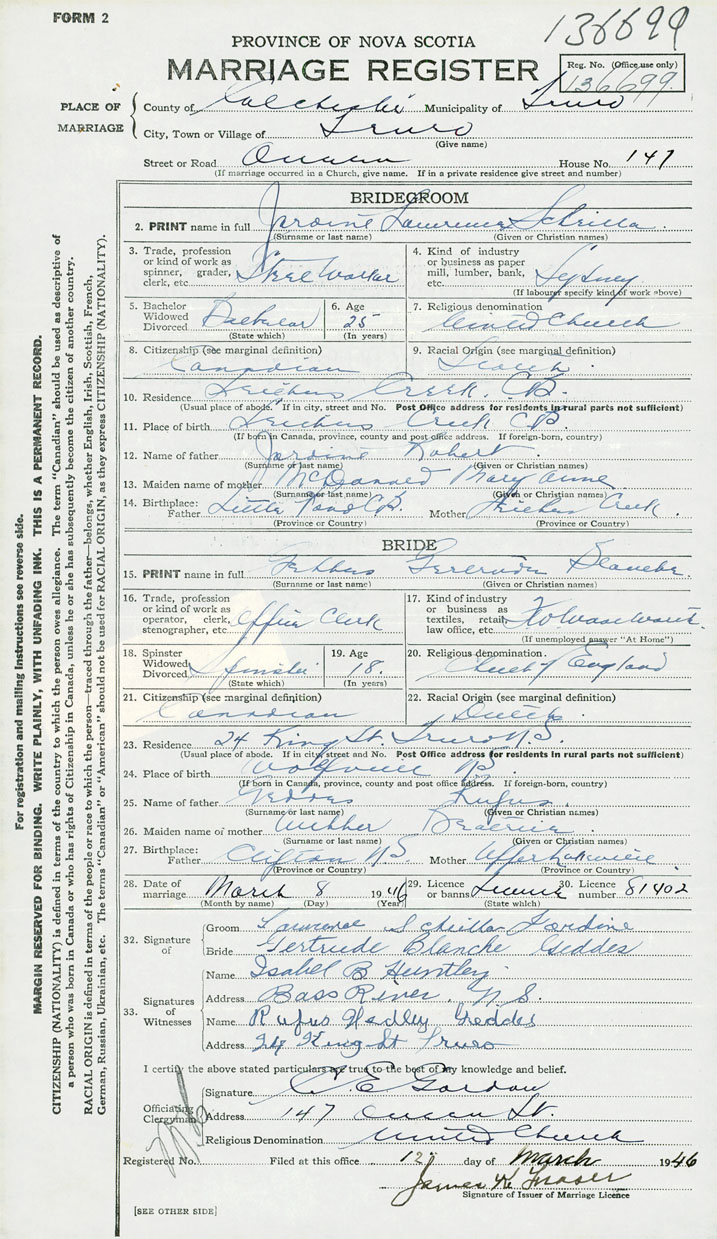 FORM 2
136699
PROVINCE OF NOVA SCOTIA
MARRIAGE REGISTER
Reg. No. (Office use only)
136699
PLACE OF MARRIAGE
County of Colchester Municipality of Truro
City, Town or Village of Truro
(Give name)
Street or Road Queen House No. 147
(If marriage occurred in a Church, give name. If in a private residence give street and number)
BRIDEGROOM
2. PRINT name in full Jardine Lawrence
(Surname or last name) (Given or Christian names)
3. Trade, profession or kind of work as spinner, grader, clerk, etc. Steel Worker
4. Kind of industry or business as paper mill, lumber, bank, etc. Sydney
(If labourer specify kind of work above)
5. Bachelor Widowed Divorced Bachelor
(State which)
6. Age 25
(In years)
7. Religious denomination United Church
8. Citizenship (see marginal definition) Canadian
9. Racial Origin (see marginal definition) Scotch
10. Residence Leitches Creek C.B.
(Usual place of abode. If in city, street and No. Post Office address for residents in rural parts not sufficient)
11. Place of birth Leitches Creek C.B.
(If born in Canada, province, county and post office address. If foreign-born, country)
12. Name of father Jardine Robert
(Surname or last name) (Given or Christian names)
13. Maiden name of mother McDonald Mary Anne
(Surname or last name) (Given or Christian names)
14. Birthplace: Father Little Pond C.B. Mother Leitches Creek
(Province or Country) (Province or Country)
BRIDE
15. PRINT name in full Geddes Gertrude Blanche
(Surname or last name) (Given or Christian names)
16. Trade, profession or kind of work as operator, clerk, stenographer, etc. Office Clerk
17. Kind of industry or business as textiles, retail, law office, etc.
(If unemployed answer "At Home")
18. Spinster Widowed Divorced Spinster
(State which)
19. Age 18.
(In years)
20. Religious denomination. Church of England
21. Citizenship (see marginal definition) Canadian
22. Racial Origin (see marginal definition) Dutch
23. Residence 24 King St. Truro N.S.
(Usual place of abode. If in city, street and No. Post Office address for residents in rural parts not sufficient)
24. Place of birth Wolfville N.S.
(If born in Canada, province, county and post office address. If foreign-born, country)
25. Name of father Geddes Rufus
(Surname or last name) (Given or Christian names)
26. Maiden name of mother
(Surname or last name) (Given or Christian names)
27. Birthplace: Father Clifton N.S. Mother Upper
(Province or Country) (Province or Country)
28. Date of marriage March 8 1946
(Month by name) (Day) (Year)
29. Licence or banns License
(State which)
30. Licence number 81402
32. Signature of
Groom Lawrence Jardine
Bride Gertrude Blanche Geddes
33. Signatures of Witnesses
Name Isabel B Huntley
Address Bass River, N.S.
Name Rufus Hedley Geddes
Address 24 King St Truro
I certify the above stated particulars are true to the best of my knowledge and belief.
Officiating Clergyman
Signature C. E. Gordon
Address 147 Queen St.
Religious Denomination United Church
Registered No. Filed at this office 12 day of March 1946
James H Fraser
Signature of Issuer of Marriage Licence
[SEE OTHER SIDE]
For registration and mailing instructions see reverse side.
MARGIN RESERVED FOR BINDING. WRITE PLAINLY, WITH UNFADING INK. THIS IS A PERMANENT RECORD.
CITIZENSHIP (NATIONALITY) is defined in terms of the country to which the person owes allegiance. The term "Canadian" should be used as descriptive of
a person who was born in Canada or who has rights of Citizenship in Canada, unless he or she has subsequently become the citizen of another country.
RACIAL ORIGIN is defined in terms of the people or race to which the person—traced through the father—belongs, whether English, Irish, Scottish, French,
German, Russian, Ukrainian, etc. The terms "Canadian" or "American" should not be used for RACIAL ORIGIN, as they express CITIZENSHIP (NATIONALITY).